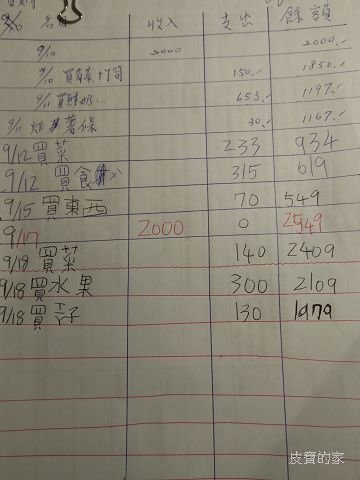 名 收入 支出 餘額
9/10 2000 2000.-
9/10 買青菜竹筍 150.- 1850.-
9/11 買鮮奶... 653.- 1197.-
9/11 炸薯條 30.- 1167.-
9/12 買菜 233 934
9/12 買食 315 619
9/15 買東西 70 549
9/17 2000 0 2549
9/18 買菜 140 2409
9/18 買水果 300 2109
9/18 買 130 1979
皮寶的家